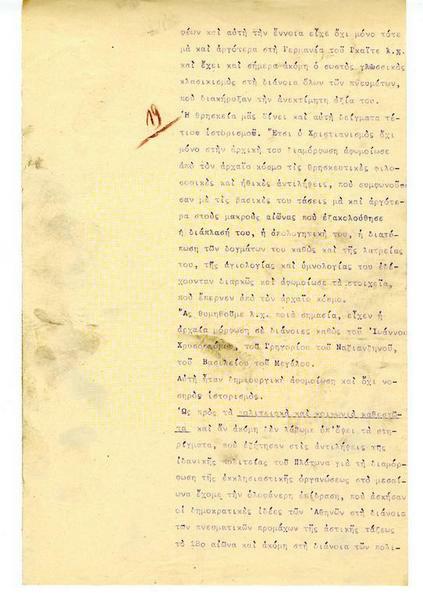 φέων καὶ αὐτὴ τὴν ἔννοια εἶχε ὄχι μόνο τότε
μὰ καὶ ἀργότερα στὴ Γερμανία τοῦ Γκαῖτε λ.χ.
καὶ ἔχει καὶ σήμερα ἀκόμη ὁ σωστὸς γλωσσικὸς
κλασικισμὸς στὴ διάνοια ὅλων τῶν πνευμάτων,
ποὺ διακήρυξαν τὴν ἀνεκτίμητη ἀξία του.
19
Ἡ θρησκεία μᾶς δίνει καὶ αὐτὴ δείγματα τέ-
τιου ἱστορισμοῦ. Ἔτσι ὁ Χριστιανισμὸς ὄχι
μόνο στὴν ἀρχική του διαμόρφωση ἀφωμοίωσε
ἀπὸ τὸν ἀρχαῖο κόσμο τὶς θρησκευτικὲς φιλο-
σοφικὲς καὶ ἠθικὲς ἀντιλήψεις, ποὺ συμφωνοῦ-
σαν μὲ τὶς βασικές του τάσεις μὰ καὶ ἀργότε-
ρα στοὺς μακροὺς αἰῶνας ποὺ ἐξακολούθησε
ἡ διάπλασή του, ἡ ἀπολογητική του, ἡ διατύ-
πωση τῶν δογμάτων του καθὼς καὶ τῆς λατρείας
του, τῆς ἁγιολογίας καὶ ὑμνολογίας του ἐδέ-
χονταν διαρκῶς καὶ ἀφωμοίωσε τὰ στοιχεῖα,
ποὺ ἔπερνεν ἀπὸ τὸν ἀρχαῖο κόσμο.
Ἂς θυμηθοῦμε λ.χ. ποιὰ σημασία, εἶχεν ἡ
ἀρχαία μόρφωση σὲ διάνοιες καθὼς τοῦ Ἰωάννου
Χρυσοστόμου, τοῦ Γρηγορίου τοῦ Ναζιανζηνοῦ,
τοῦ Βασιλείου τοῦ Μεγάλου.
Αὐτὴ ἦταν δημιουργικὴ ἀφομοίωση καὶ ὄχι νο-
σηρὸς ἱστορισμός.
Ὡς πρὸς τὰ πολιτειακὰ καὶ κοινωνικὰ καθεστῶ-
τα καὶ ἂν ἀκόμη δὲν λάβωμε ὑπ' ὄψει τὰ στη-
ρίγματα, ποὺ ἐζήτησαν στὶς ἀντιλήψεις τῆς
ἰδανικῆς πολιτείας τοῦ Πλάτωνα γιὰ τὴ διαμόρ-
φωση τῆς ἐκκλησιαστικῆς ὀργανώσεως στὸ μεσαί-
ωνα ἔχομε τὴν ὁλοφάνερη ἐπίδραση, ποὺ ἀσκήσαν
οἱ δημοκρατικὲς ἰδέες τῶν Ἀθηνῶν στὴ διάνοια
τῶν πνευματικῶν προμάχων τῆς ἀστικῆς τάξεως
τὸ 18ο αἰῶνα καὶ ἀκόμη στὴ διάνοια τῶν πολι-